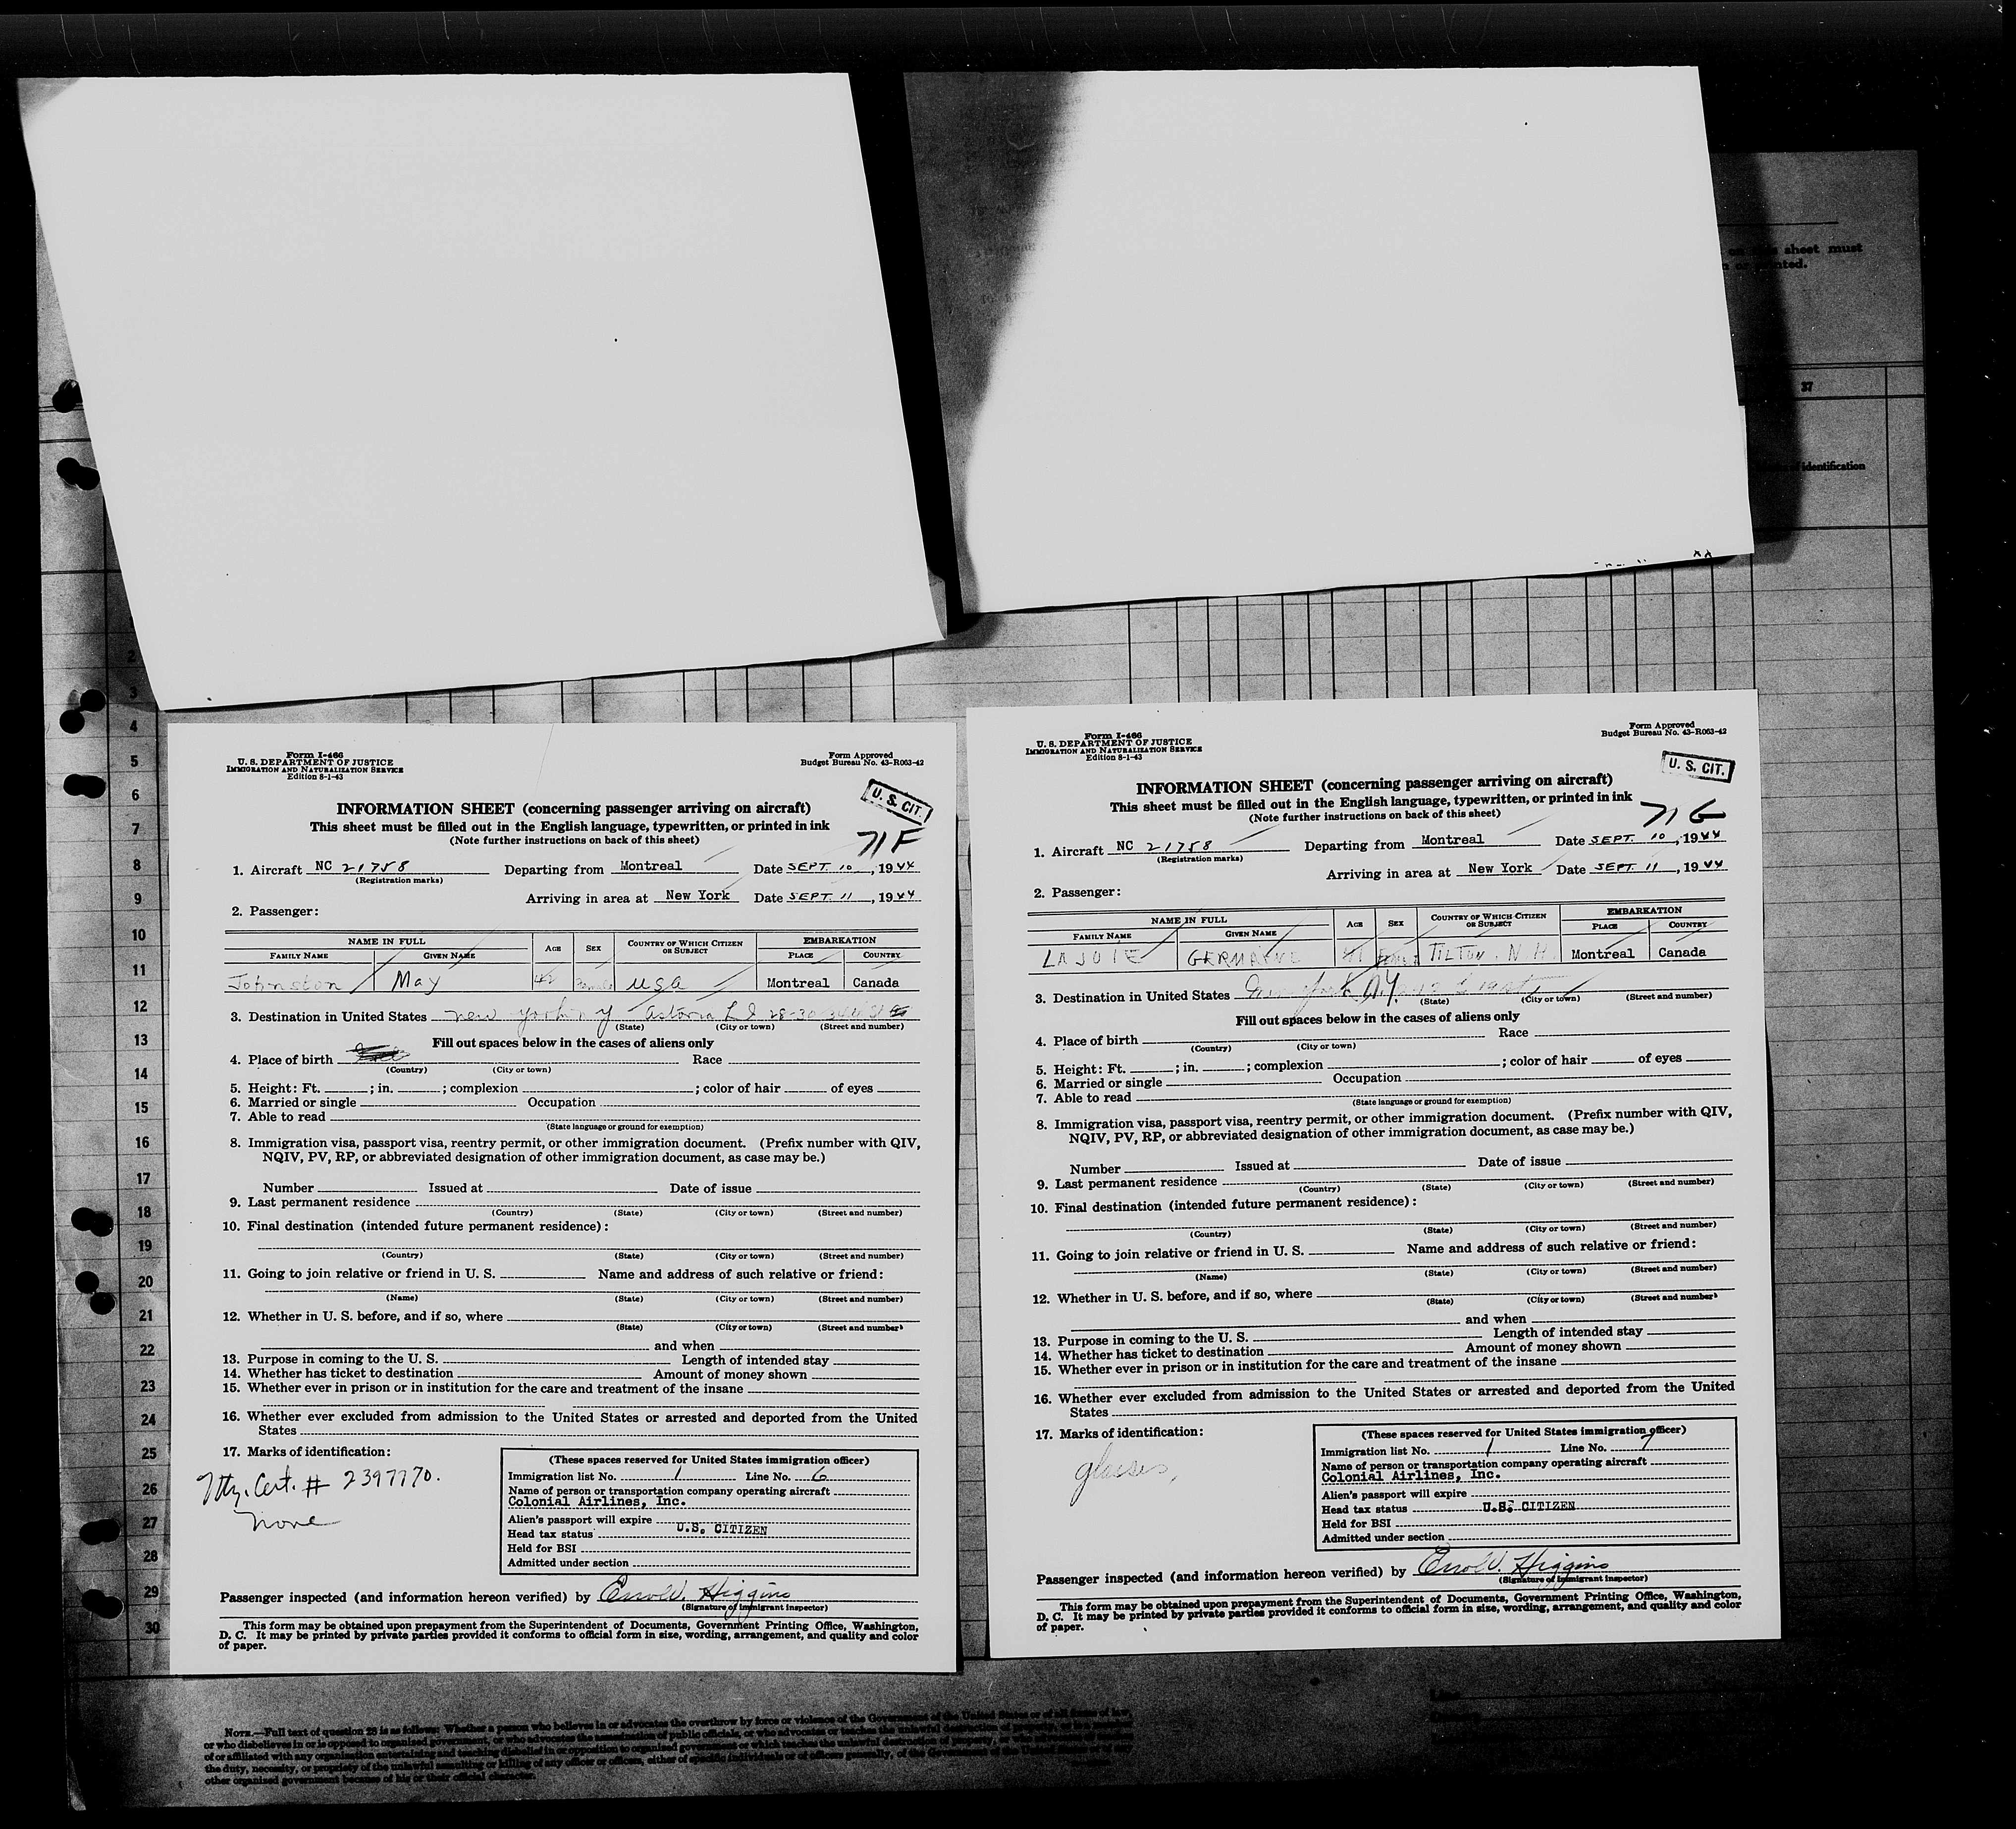 on this sheet must
or printed.
37
identification
2
3
4
5
6
7
8
9
10
11
12
13
14
15
16
17
18
19
20
21
22
23
24
25
26
27
28
29
30
Form I-466
U. S. DEPARTMENT OF JUSTICE
IMMIGRATION AND NATURALIZATION SERVICE
Edition 8-1-43
Form Approved
Budget Bureau No. 43-R063-42
U. S. CIT.
INFORMATION SHEET (concerning passenger arriving on aircraft)
This sheet must be filled out in the English language, typewritten, or printed in ink
(Note further instructions on back of this sheet)
71F
1. Aircraft NC 21758 Departing from Montreal Date SEPT. 10, 1944
(Registration marks)
Arriving in area at New York Date SEPT. 11, 1944
2. Passenger:
NAME IN FULL AGE SEX COUNTRY OF WHICH CITIZEN OR SUBJECT EMBARKATION
FAMILY NAME GIVEN NAME PLACE COUNTRY
Johnston May 42 Female USA Montreal Canada
3. Destination in United States new york n y Astoria L I 28-30
(State) (City or town) (Street and number)
Fill out spaces below in the cases of aliens only
4. Place of birth Race
(Country) (City or town)
5. Height: Ft. ; in. ; complexion ; color of hair of eyes
6. Married or single Occupation
7. Able to read
(State language or ground for exemption)
8. Immigration visa, passport visa, reentry permit, or other immigration document. (Prefix number with QIV,
NQIV, PV, RP, or abbreviated designation of other immigration document, as case may be.)
Number Issued at Date of issue
9. Last permanent residence
(Country) (State) (City or town) (Street and number)
10. Final destination (intended future permanent residence):
(Country) (State) (City or town) (Street and number)
11. Going to join relative or friend in U. S. Name and address of such relative or friend:
(Name) (State) (City or town) (Street and number)
12. Whether in U. S. before, and if so, where
(State) (City or town) (Street and number)
and when
13. Purpose in coming to the U. S. Length of intended stay
14. Whether has ticket to destination Amount of money shown
15. Whether ever in prison or in institution for the care and treatment of the insane
16. Whether ever excluded from admission to the United States or arrested and deported from the United
States
17. Marks of identification:
Ntz. Cert. # 2397770.
none
(These spaces reserved for United States immigration officer)
Immigration list No. 1 Line No. 6
Name of person or transportation company operating aircraft
Colonial Airlines, Inc.
Alien's passport will expire
Head tax status U.S. CITIZEN
Held for BSI
Admitted under section
Passenger inspected (and information hereon verified) by Errol W. Higgins
(Signature of immigrant inspector)
This form may be obtained upon prepayment from the Superintendent of Documents, Government Printing Office, Washington,
D. C. It may be printed by private parties provided it conforms to official form in size, wording, arrangement, and quality and color
of paper.
Form I-466
U. S. DEPARTMENT OF JUSTICE
IMMIGRATION AND NATURALIZATION SERVICE
Edition 8-1-43
Form Approved
Budget Bureau No. 43-R063-42
U. S. CIT.
INFORMATION SHEET (concerning passenger arriving on aircraft)
This sheet must be filled out in the English language, typewritten, or printed in ink
(Note further instructions on back of this sheet)
71G
1. Aircraft NC 21758 Departing from Montreal Date SEPT. 10, 1944
(Registration marks)
Arriving in area at New York Date SEPT. 11, 1944
2. Passenger:
NAME IN FULL AGE SEX COUNTRY OF WHICH CITIZEN OR SUBJECT EMBARKATION
FAMILY NAME GIVEN NAME PLACE COUNTRY
LAJOIE GERMAINE 41 TILTON. N.H. Montreal Canada
3. Destination in United States New York N.Y.
(State) (City or town) (Street and number)
Fill out spaces below in the cases of aliens only
4. Place of birth Race
(Country) (City or town)
5. Height: Ft. ; in. ; complexion ; color of hair of eyes
6. Married or single Occupation
7. Able to read
(State language or ground for exemption)
8. Immigration visa, passport visa, reentry permit, or other immigration document. (Prefix number with QIV,
NQIV, PV, RP, or abbreviated designation of other immigration document, as case may be.)
Number Issued at Date of issue
9. Last permanent residence
(Country) (State) (City or town) (Street and number)
10. Final destination (intended future permanent residence):
(Country) (State) (City or town) (Street and number)
11. Going to join relative or friend in U. S. Name and address of such relative or friend:
(Name) (State) (City or town) (Street and number)
12. Whether in U. S. before, and if so, where
(State) (City or town) (Street and number)
and when
13. Purpose in coming to the U. S. Length of intended stay
14. Whether has ticket to destination Amount of money shown
15. Whether ever in prison or in institution for the care and treatment of the insane
16. Whether ever excluded from admission to the United States or arrested and deported from the United
States
17. Marks of identification:
glasses,
(These spaces reserved for United States immigration officer)
Immigration list No. 1 Line No. 7
Name of person or transportation company operating aircraft
Colonial Airlines, Inc.
Alien's passport will expire
Head tax status U.S. CITIZEN
Held for BSI
Admitted under section
Passenger inspected (and information hereon verified) by Errol W. Higgins
(Signature of immigrant inspector)
This form may be obtained upon prepayment from the Superintendent of Documents, Government Printing Office, Washington,
D. C. It may be printed by private parties provided it conforms to official form in size, wording, arrangement, and quality and color
of paper.
NOTE.—Full text of question 28 is as follows: Whether a person who believes in or advocates the overthrow by force or violence of the Government of the United States or of all forms of law,
or who disbelieves in or is opposed to organized government, or who advocates the assassination of public officials, or who advocates or teaches the unlawful destruction of property,
of or affiliated with any organization entertaining and teaching disbelief in or opposition to organized government or which teaches the unlawful destruction of property,
the duty, necessity, or propriety of the unlawful assaulting or killing of any officer or officers, either of specific individuals or of officers generally, of the Government of the United States
other organized government because of his or their official character.